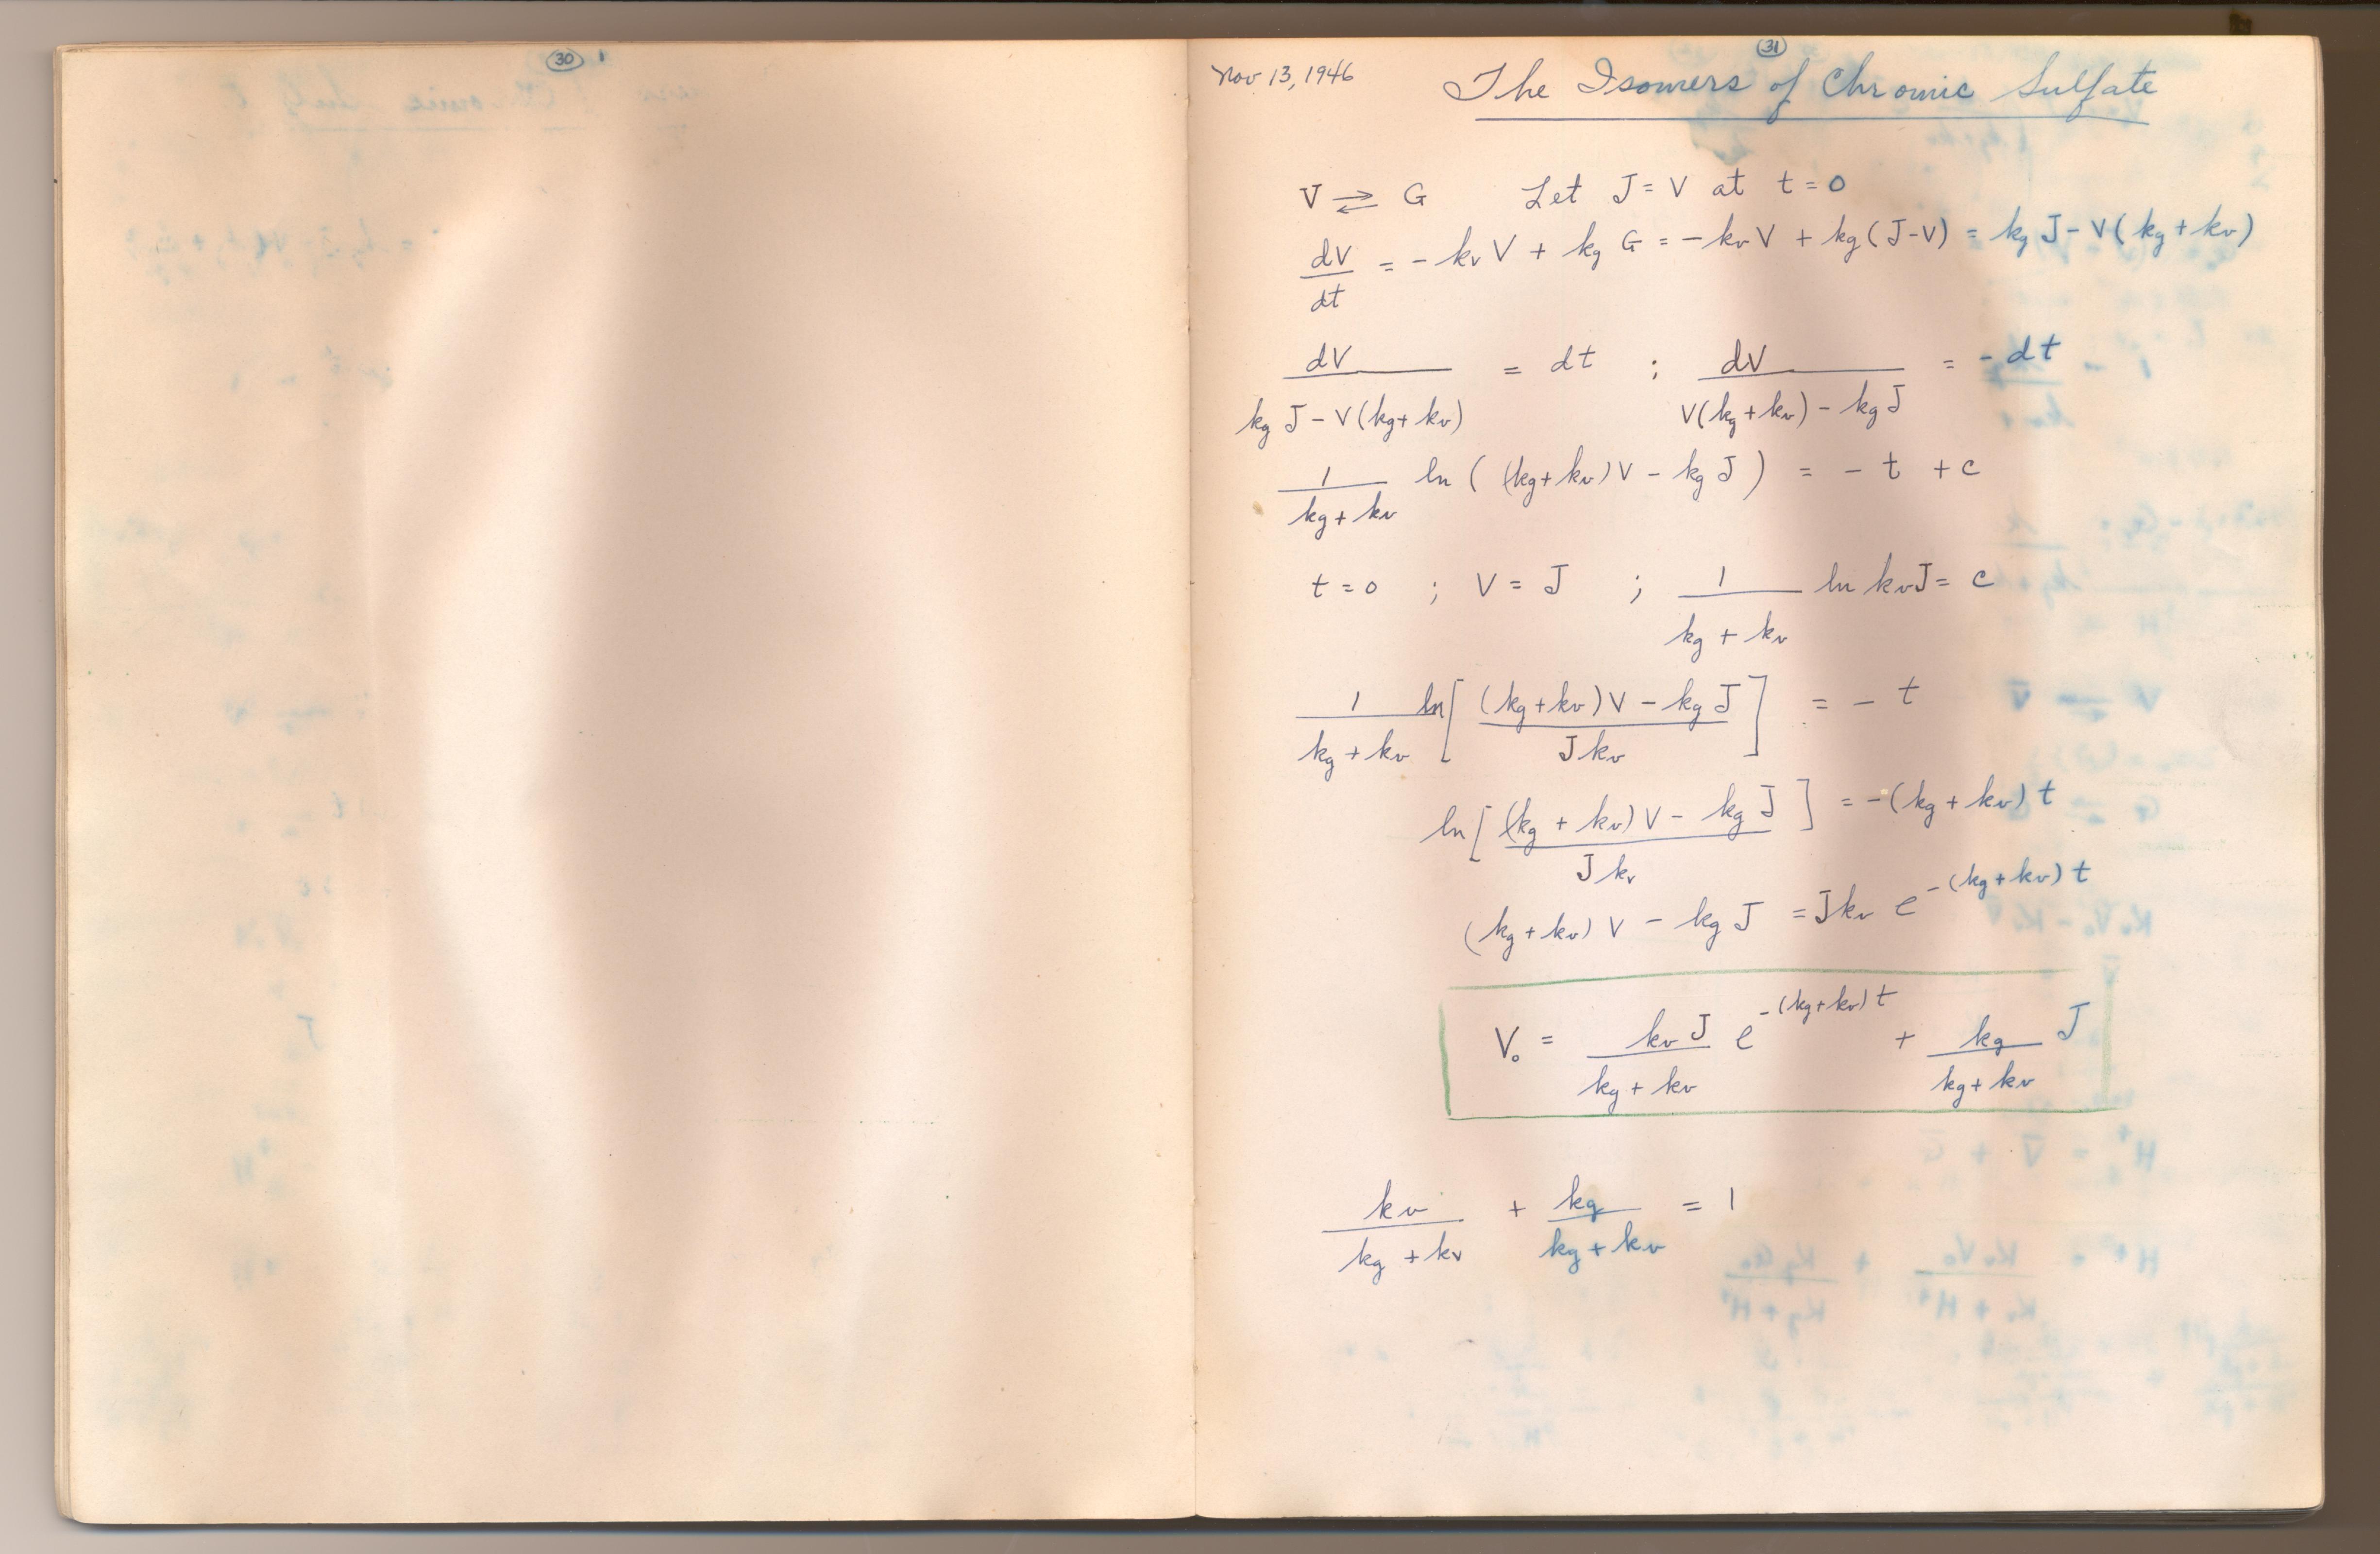 30
31
Nov 13, 1946
The Isomers of Chromic Sulfate
V ⇌ G Let J = V at t = 0
dV/dt = - kv V + kg G = - kv V + kg (J-V) = kg J - V (kg + kv)
dV/(kg J - V(kg + kv)) = dt ; dV/(V(kg + kv) - kg J) = - dt
1/(kg + kv) ln ( (kg + kv) V - kg J ) = - t + c
t = 0 ; V = J ; 1/(kg + kv) ln kv J = c
1/(kg + kv) ln [ ((kg + kv) V - kg J)/(J kv) ] = - t
ln [ ((kg + kv) V - kg J)/(J kv) ] = - (kg + kv) t
(kg + kv) V - kg J = J kv e^-(kg + kv) t
V₀ = (kv J)/(kg + kv) e^-(kg + kv) t + kg/(kg + kv) J
kv/(kg + kv) + kg/(kg + kv) = 1